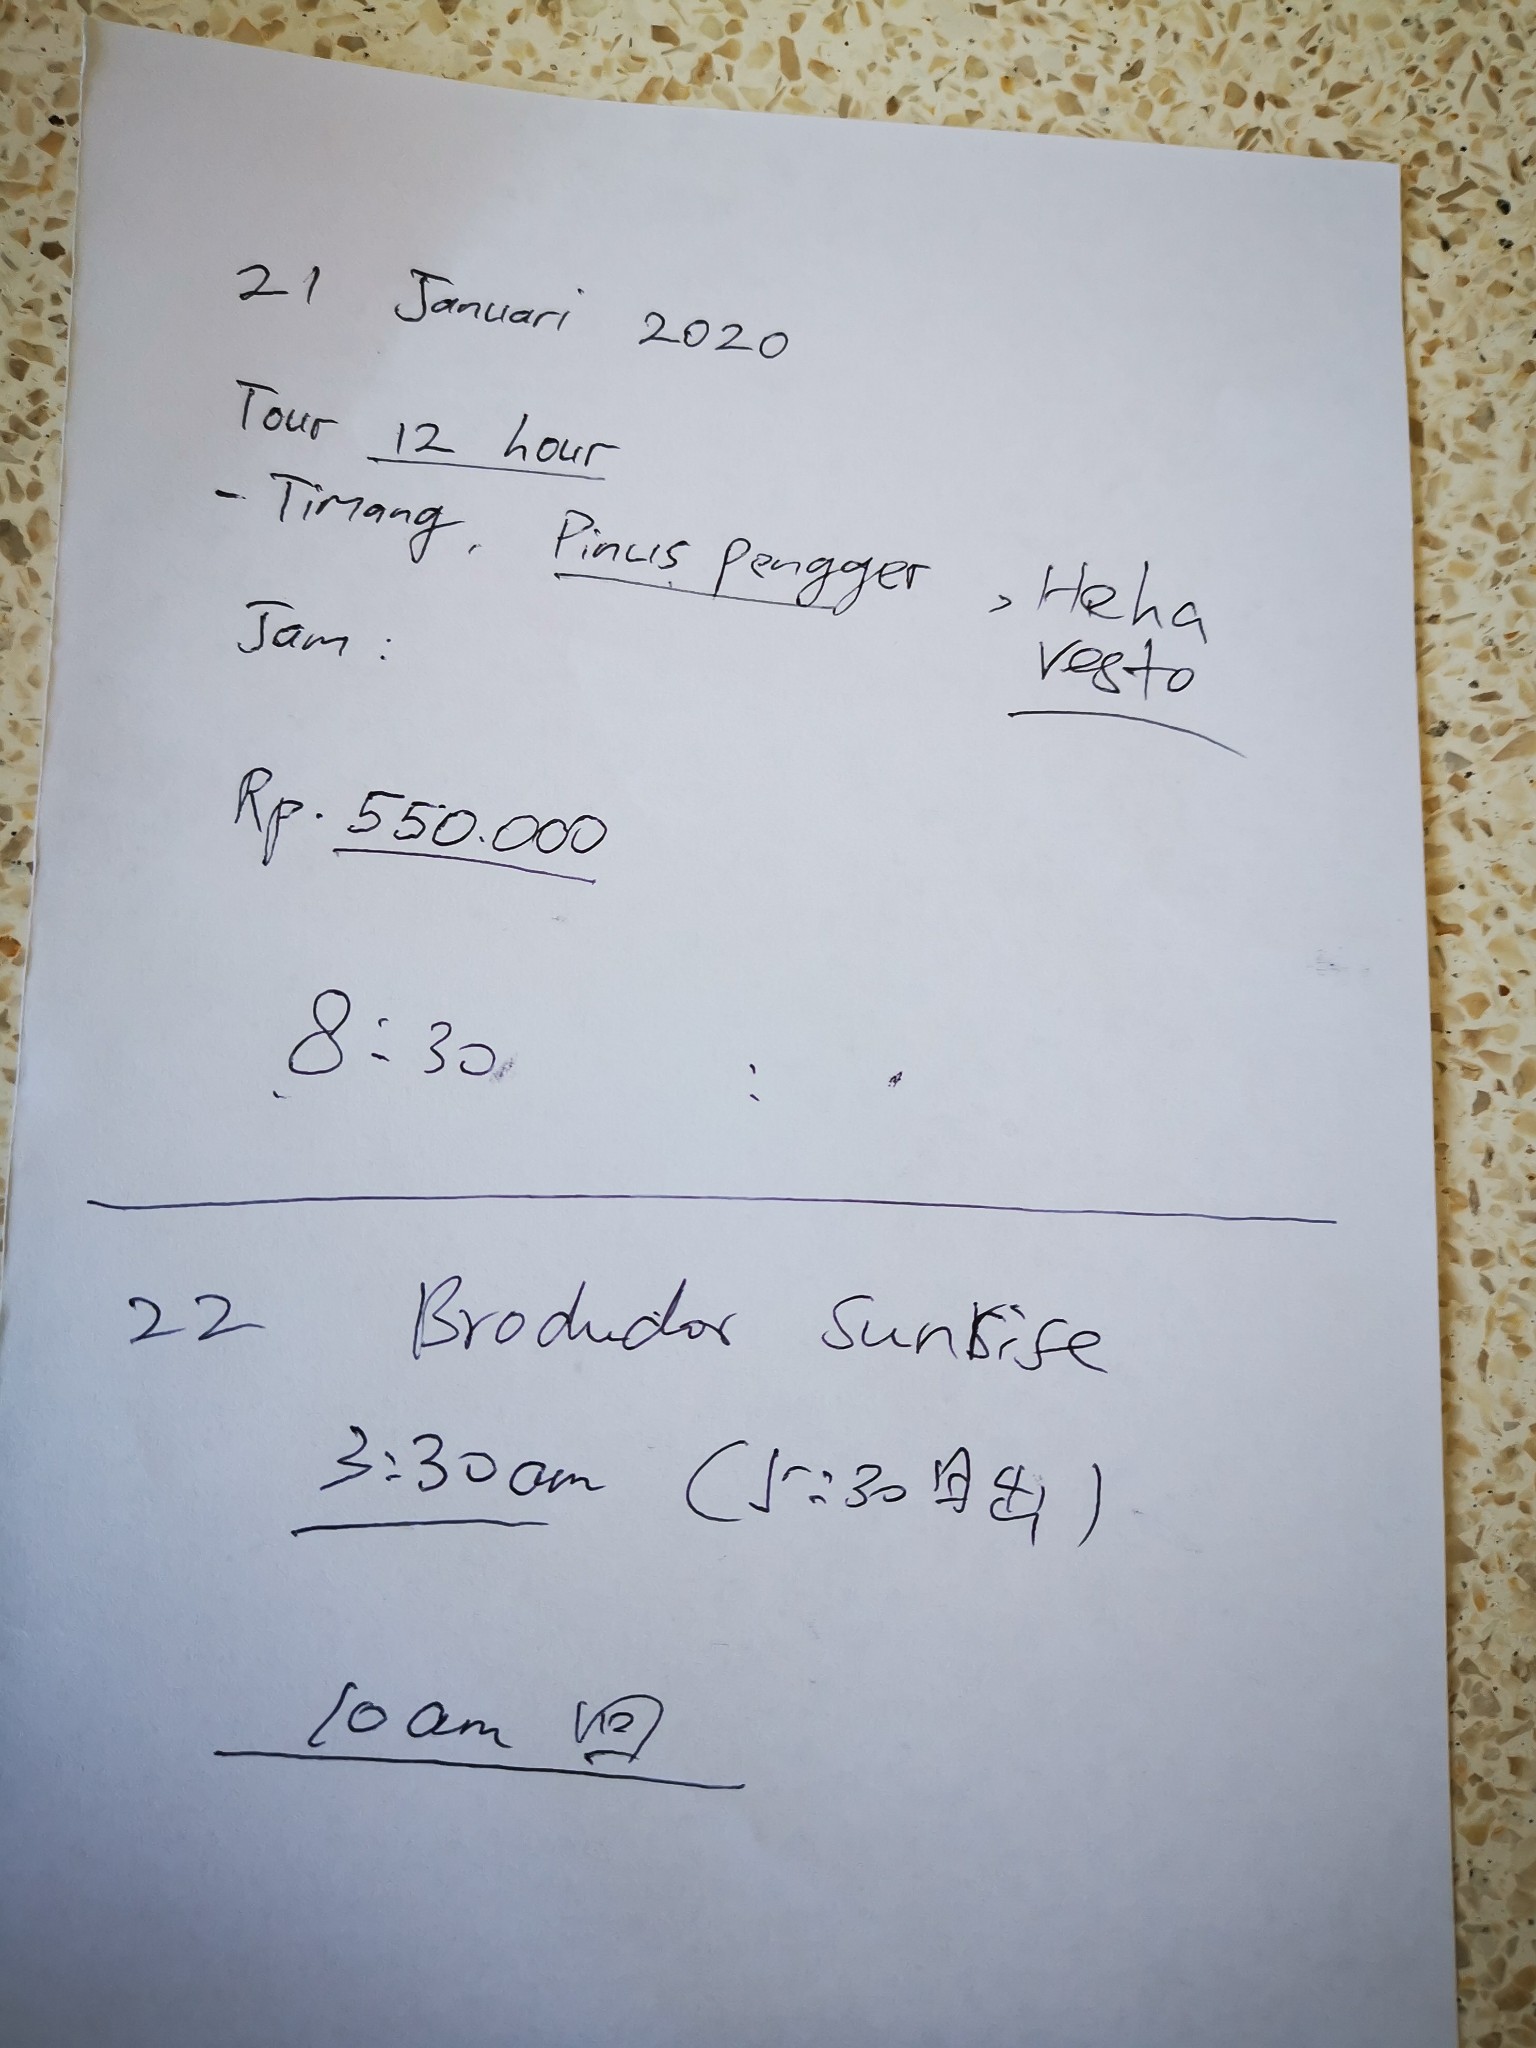 21 Januari 2020
Tour 12 hour
- Timang, Pinus Pengger, Heha
vesto
Jam :
Rp. 550.000
8:30 :
22 Brodudor Sunrise
3:30am (5:30日出)
10am 回